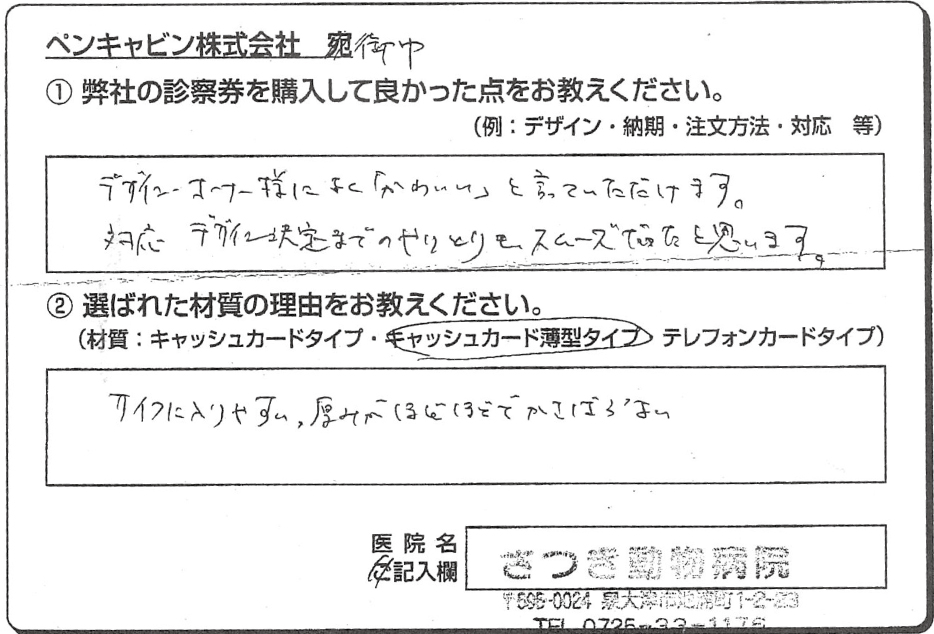 ペンキャビン株式会社 宛 御中
① 弊社の診察券を購入して良かった点をお教えください。
(例：デザイン・納期・注文方法・対応 等)
デザイン・オーナー様によく「かわいい」と言っていただけます。
対応 デザイン決定までのやりとりもスムーズだったと思います。
② 選ばれた材質の理由をお教えください。
(材質：キャッシュカードタイプ・キャッシュカード薄型タイプ テレフォンカードタイプ)
サイフに入りやすい、厚みがほどほどでかさばらない
医院名
ご記入欄
さつき動物病院
〒595-0024 泉大津市池浦町1-2-23
TEL 0725-33-1176